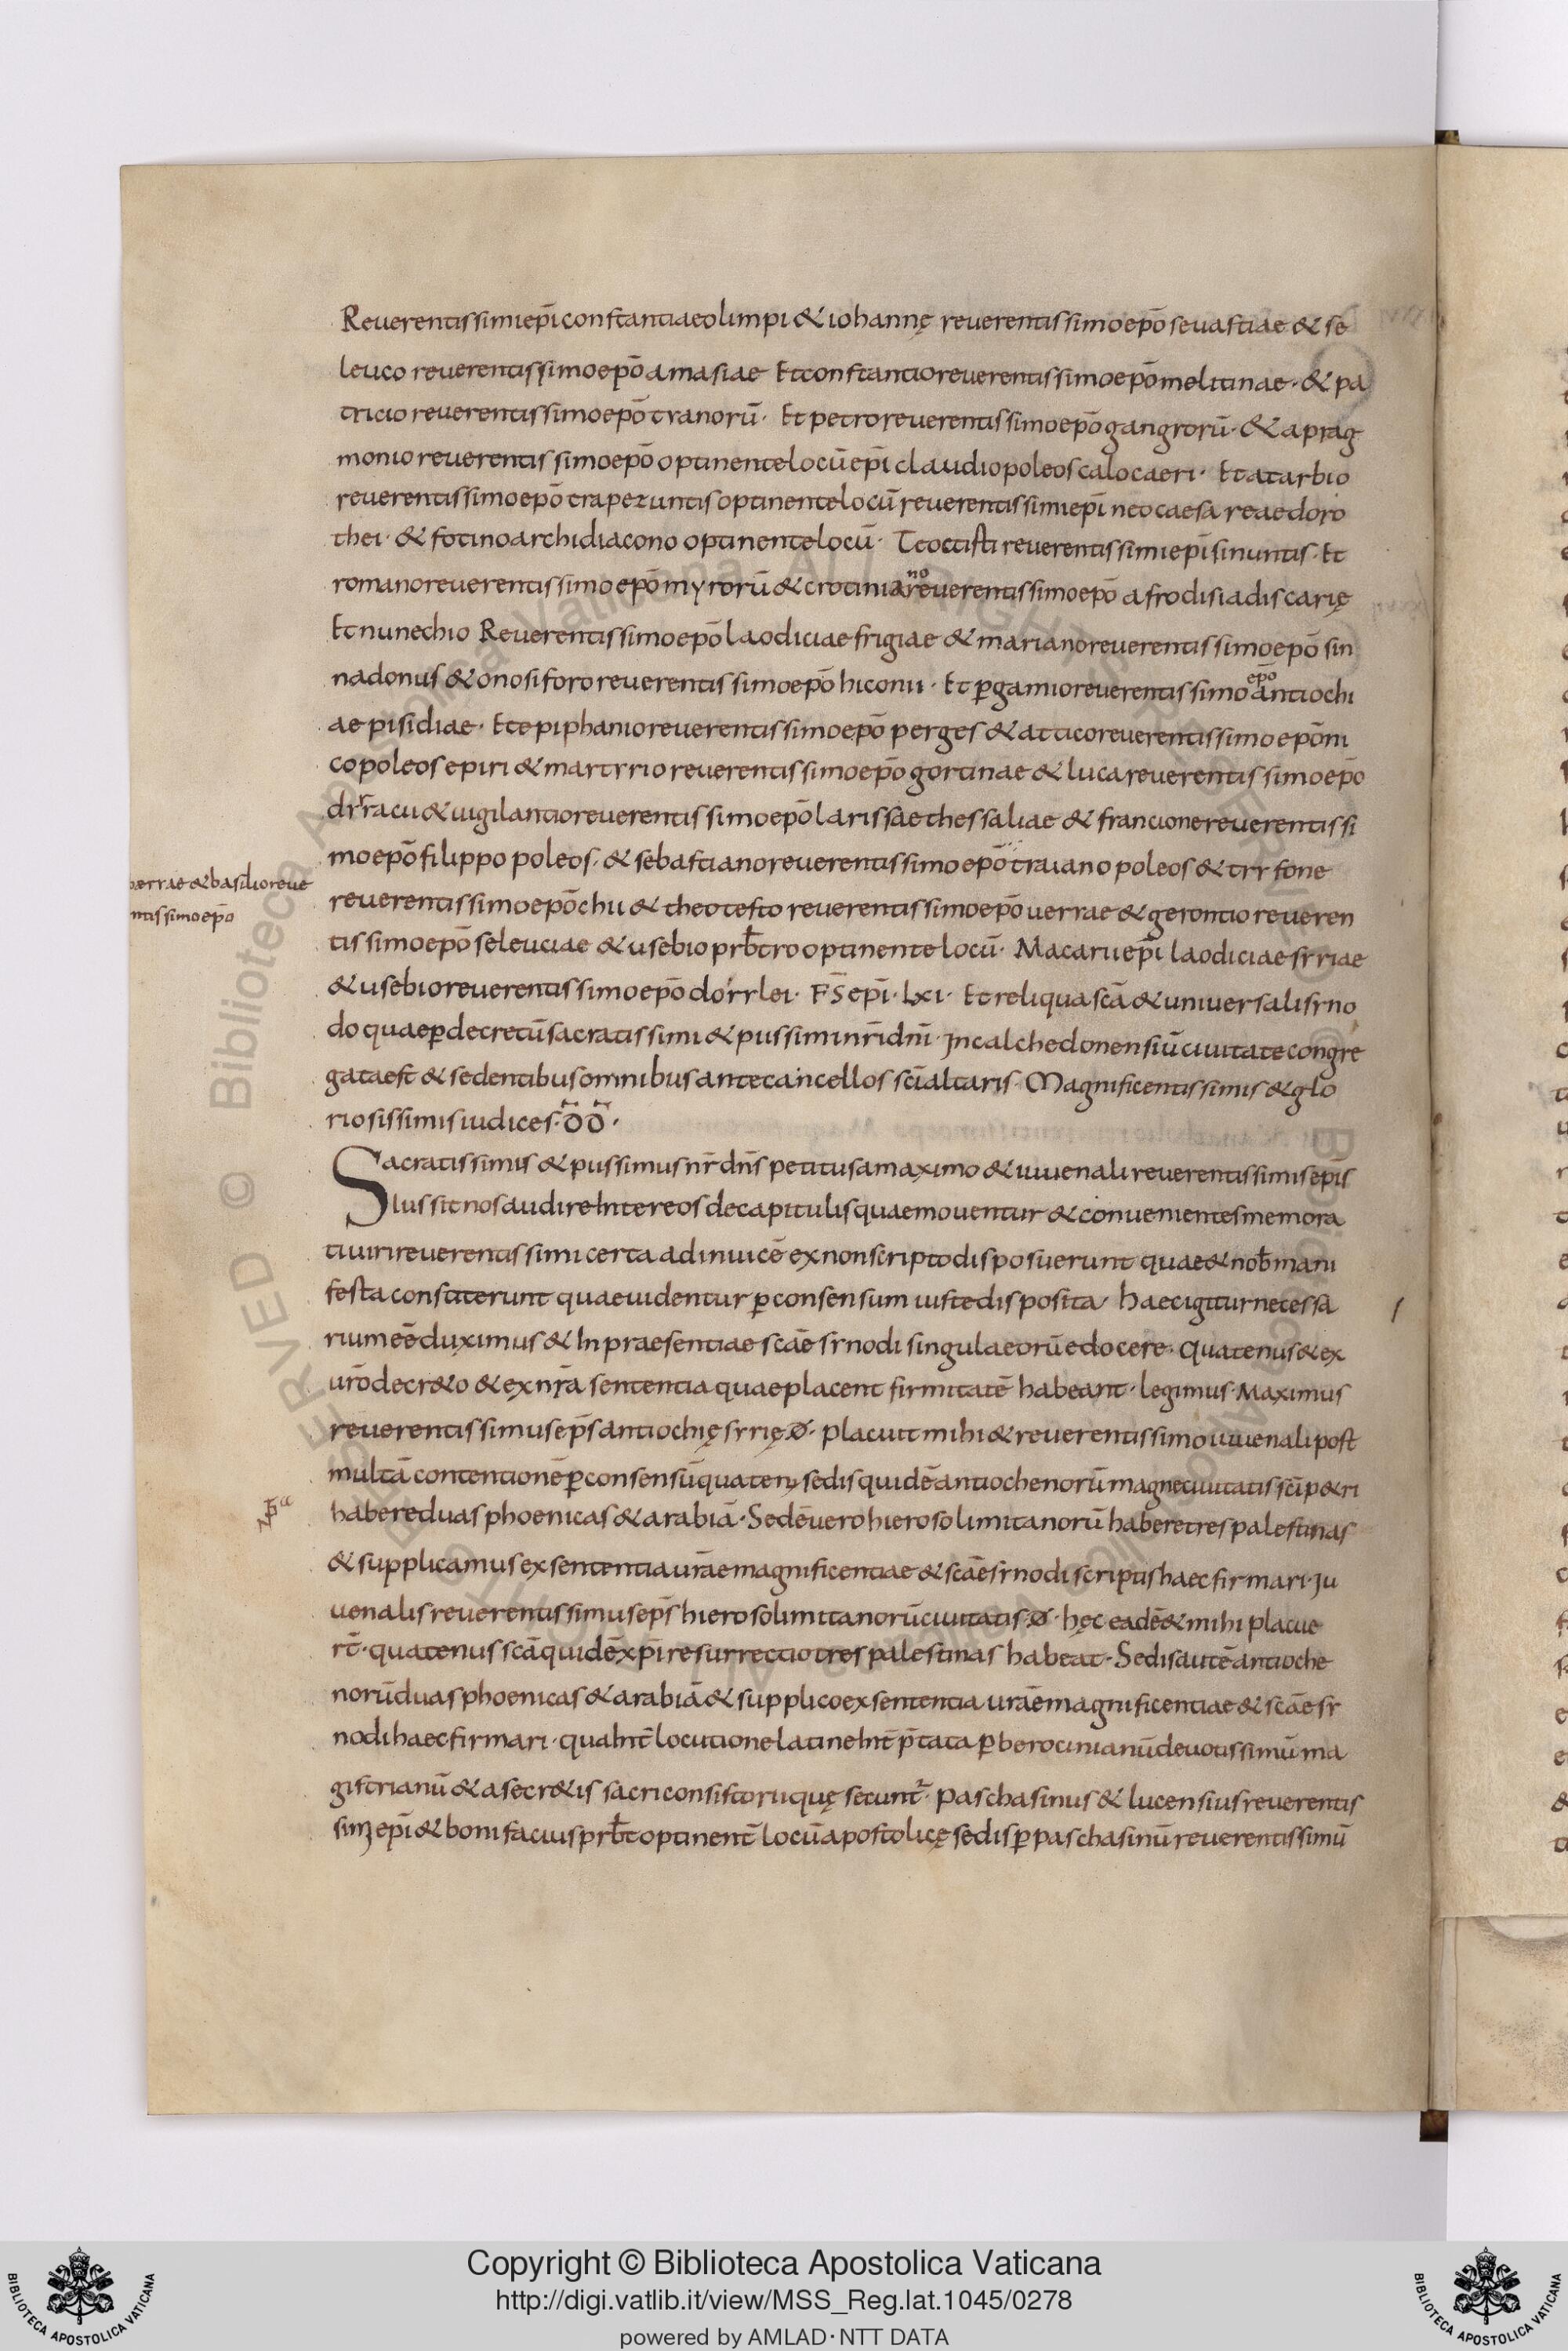 Reuerentissimi ep̄i constantiae olimpi & iohannę reuerentissimo ep̄o seuastiae & se
leuco reuerentissimo ep̄o amasiae Et constantio reuerentissimo ep̄o melitinae · & pa
tricio reuerentissimo ep̄o tranorū · Et petro reuerentissimo ep̄o gangrorū · & aprag
monio reuerentissimo ep̄o optinente locū ep̄i claudiopoleos calocaeri · Et atarbio
reuerentissimo ep̄o trapezuntis optinente locū reuerentissimi ep̄i neocaesareae doro
thei · & fotino archidiacono optinente locū · Teoctisti reuerentissimi ep̄i sinuntis · Et
romano reuerentissimo ep̄o myrorū & crotiniano reuerentissimo ep̄o afrodisiadis carię
Et nunechio Reuerentissimo ep̄o laodiciae frigiae & mariano reuerentissimo ep̄o sin
nadonus & onosiforo reuerentissimo ep̄o hiconii · Et ꝑgamio reuerentissimo ep̄o antiochi
ae pisidiae · Et epiphanio reuerentissimo ep̄o perges & attico reuerentissimo ep̄o ni
copoleos epiri & martyrio reuerentissimo ep̄o gortinae & luca reuerentissimo ep̄o
dyrracii & uigilantio reuerentissimo ep̄o larissae thessaliae & francione reuerentissi
mo ep̄o filippopoleos · & sebastiano reuerentissimo ep̄o traianopoleos & tryfone
berrae & basilio reue
ntissimo ep̄o
reuerentissimo ep̄o chii & theotesto reuerentissimo ep̄o uerrae & gerontio reueren
tissimo ep̄o seleuciae & usebio prb̄tro optinente locū · Macarii ep̄i laodiciae syriae
& usebio reuerentissimo ep̄o dorylei · FS̄ ep̄i · lxi · Et reliqua scā & uniuersali syno
do quae ꝑ decretū sacratissimi & piissimi nr̄i dn̄i · In calchedonensiū ciuitate congre
gata est & sedentibus omnibus ante cancellos sc̄i altaris · Magnificentissimis & glo
riosissimis iudices · d̄d̄ ·
Sacratissimis & piissimus nr̄ dn̄s petitus a maximo & iuuenali reuerentissimis ep̄is
iussit nos audire Inter eos de capitulis quae mouentur & conuenientes memora
ti uiri reuerentissimi certa ad inuicē ex non scripto disposuerunt quae & nob̄ mani
festa constiterunt quae uidentur ꝑ consensum iuste disposita · haec igitur necessa
rium eē duximus & In praesentiae scāe synodi singula eorū edocere · quatenus & ex
ur̄o decr&o & ex nr̄a sententia quae placent firmitatē habeant · legimus · Maximus
reuerentissimus ep̄s antiochię syrię ꝺ̸ · placuit mihi & reuerentissimo iuuenali post
multā contentionē ꝑ consensū quaten; sedis quidē antiochenorū magne ciuitatis sc̄i p&ri
habere duas phoenicas & arabiā · Sedē uero hierosolimitanorū habere tres palestinas
& supplicamus ex sententia ur̄ae magnificentiae & scāe synodi scriptis haec firmari · Iu
uenalis reuerentissimus ep̄s hierosolimitanorū ciuitatis · ꝺ̸ · hęc eadē & mihi placue
rt̄ · quatenus scā quidē xp̄i resurrectio tres palestinas habeat · Sedis autē antioche
norū duas phoenicas & arabiā & supplico ex sententia ur̄ae magnificentiae & scāe sy
nodi haec firmari · qua Int̄ locutione latine Int̄p̄tata ꝑ berocinianū deuotissimū ma
gistrianū & a secr&is sacri consistorii quę secunt̄ · paschasinus & lucensius reuerentis
simi ep̄i & bonifacius prb̄t optinent̄ locū apostolicę sedis ꝑ paschasinū reuerentissimū
Copyright © Biblioteca Apostolica Vaticana
http://digi.vatlib.it/view/MSS_Reg.lat.1045/0278
powered by AMLAD · NTT DATA
BIBLIOTECA APOSTOLICA VATICANA
BIBLIOTECA APOSTOLICA VATICANA